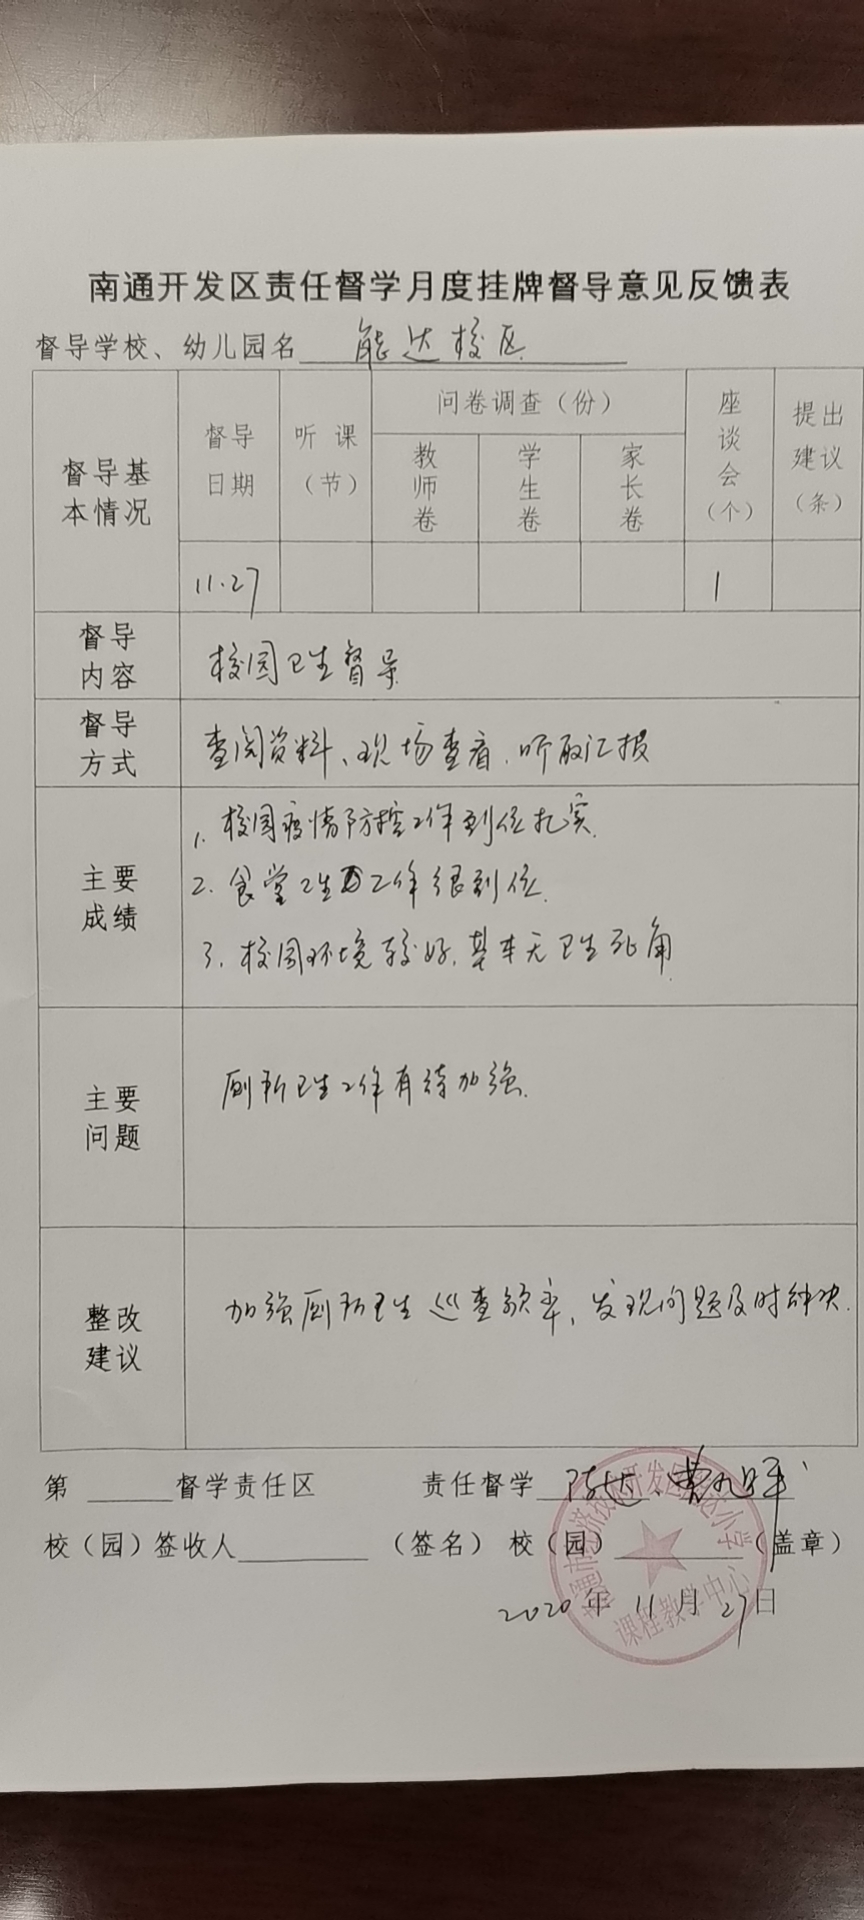 南通开发区责任督学月度挂牌督导意见反馈表
督导学校、幼儿园名 能达校区
督导基本情况
督导日期
听课（节）
问卷调查（份）
教师卷
学生卷
家长卷
座谈会（个）
提出建议（条）
11.27
1
督导内容
校园卫生督导
督导方式
查阅资料、现场查看、听取汇报
主要成绩
1. 校园疫情防控工作到位扎实.
2. 食堂卫生工作很到位.
3. 校园环境较好,基本无卫生死角
主要问题
厕所卫生工作有待加强.
整改建议
加强厕所卫生巡查频率,发现问题及时解决.
第 督学责任区 责任督学
校（园）签收人 （签名） 校（园） （盖章）
2020年11月27日
开发区能达小学
课程教学中心